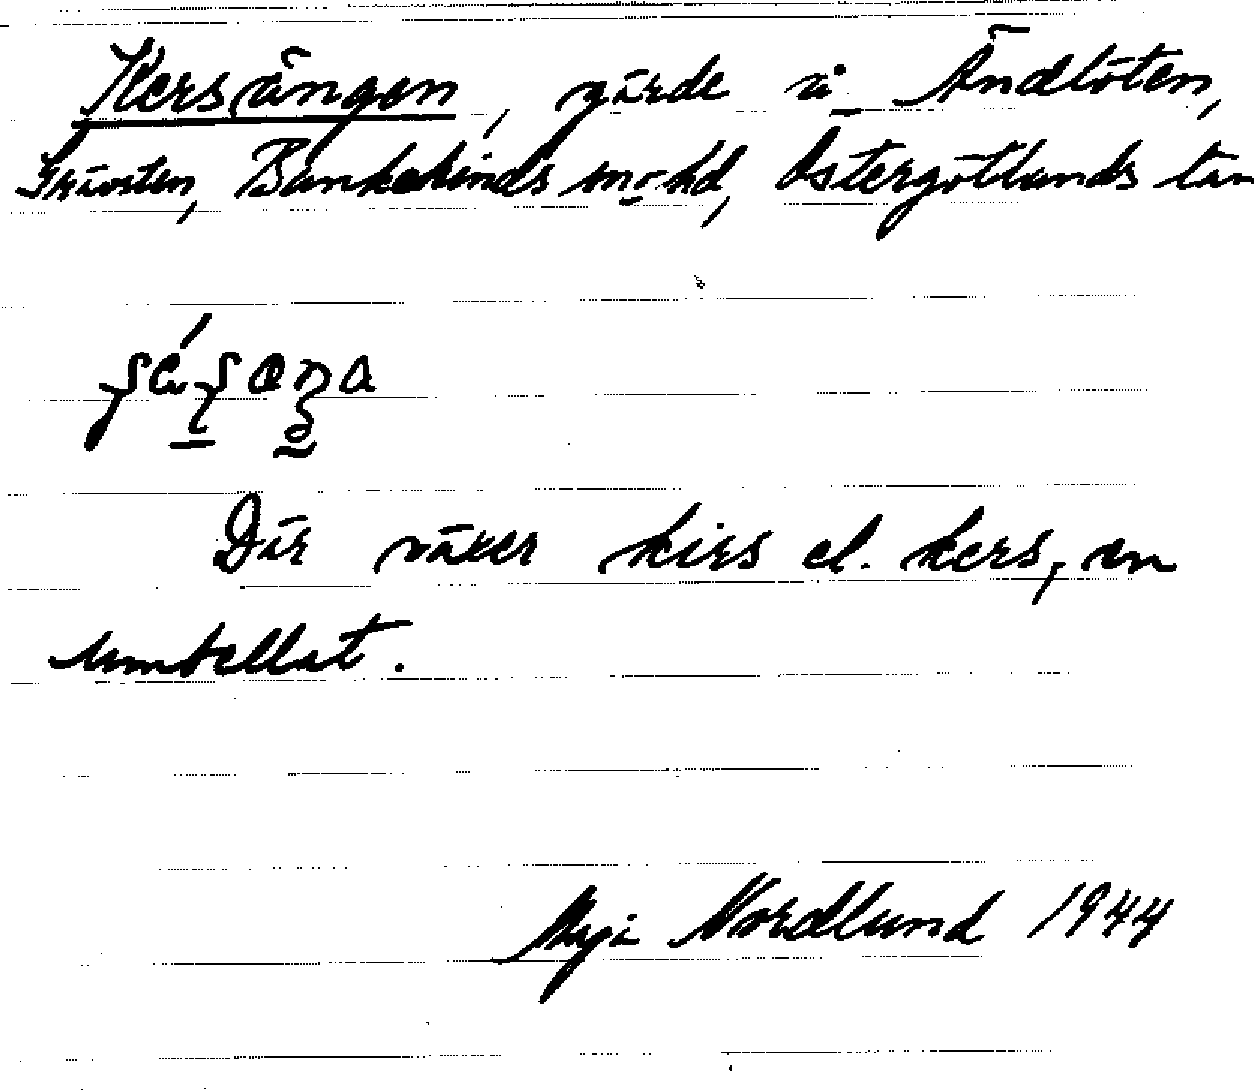 Kersängen, gärde å Ändlöten,
Bankekinds sn o. hd, Östergötlands län
Där växer kirs el. kers, en
umbellat.
Maja Nordlund 1944